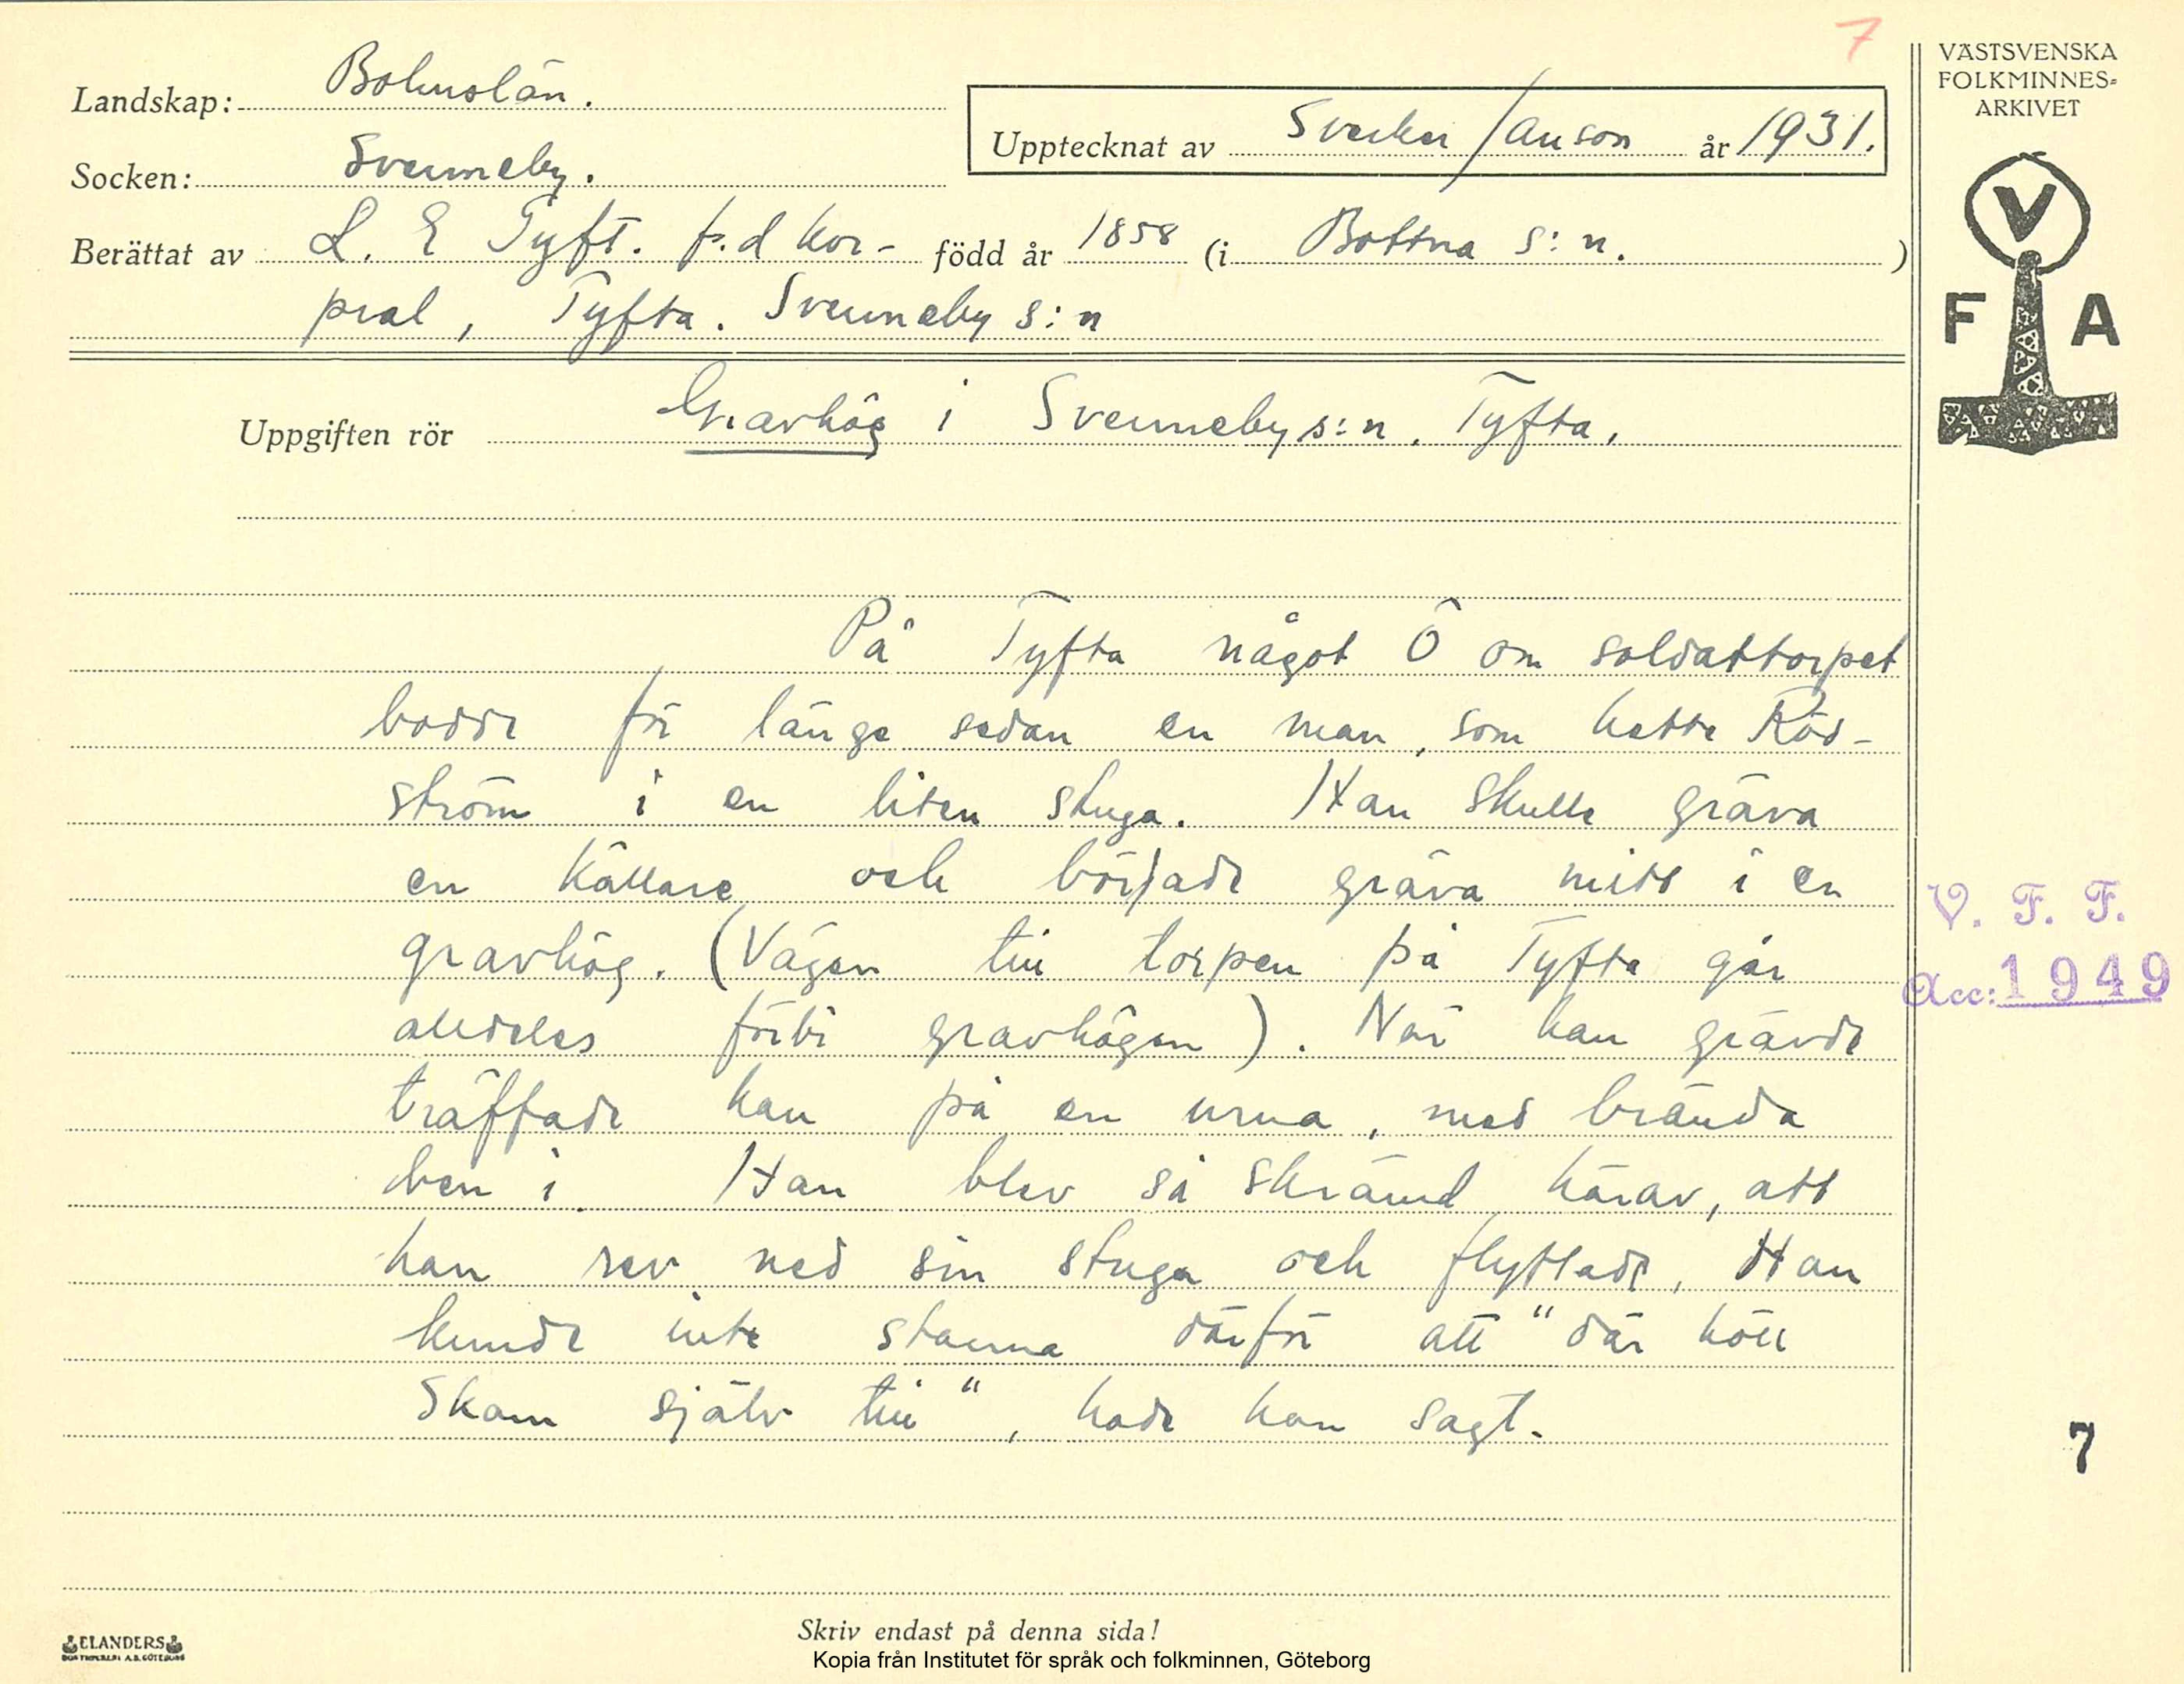 7
VÄSTSVENSKA
FOLKMINNES=
ARKIVET
Landskap: Bohuslän.
Upptecknat av Sverker Janson år 1931.
Socken: Svenneby.
Berättat av L. E Tyft. f.d kor- född år 1858 (i Bottna s:n. )
pral, Tyfta. Svenneby s:n
V
F A
Uppgiften rör Gravhög i Svenneby s:n. Tyfta.
På Tyfta något Ö om soldattorpet
bodde för länge sedan en man, som hette Röd-
ström i en liten stuga. Han skulle gräva
en källare och började gräva mitt i en
gravhög. (Vägen till torpen på Tyfta går
alldeles förbi gravhögen). När han grävde
träffade han på en urna, med brända
ben i. Han blev så skrämd härav, att
han rev ned sin stuga och flyttade. Han
kunde inte stanna därför att "där höll
Skam själv till", hade han sagt.
V. F. F.
Acc: 1949
7
Skriv endast på denna sida!
ELANDERS
BOKTRYCKERI A.B. GÖTEBORG
Kopia från Institutet för språk och folkminnen, Göteborg